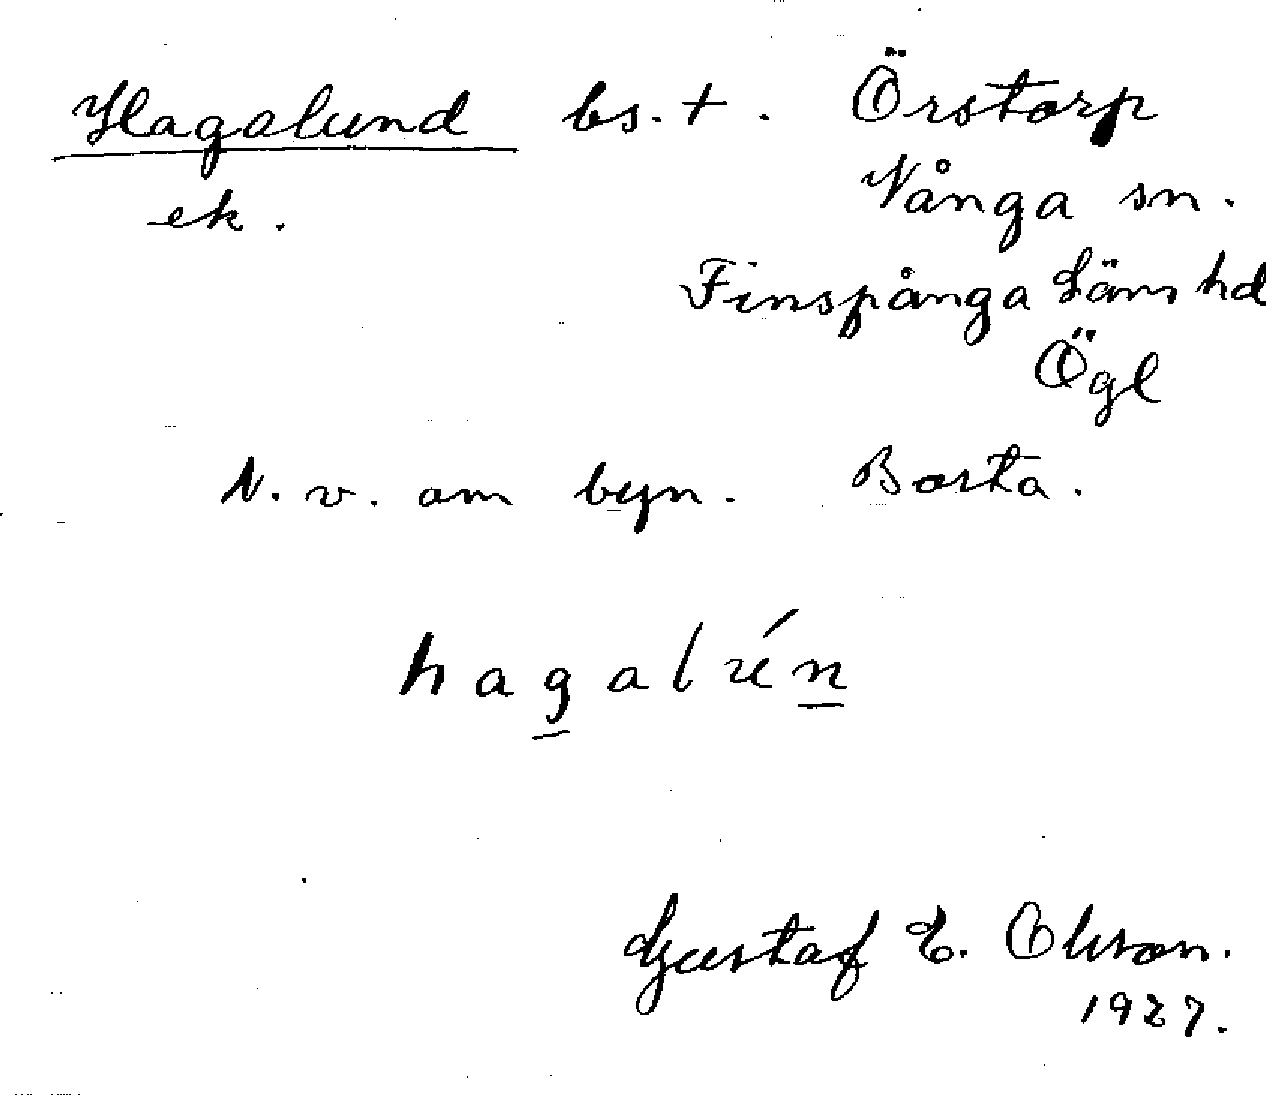 Hagalund bs. t. Örstorp
ek. Vånga sn.
Finspånga Läns hd
Ögl
N. v. om byn. Borsta.
Gustaf E. Olsson.
1927.